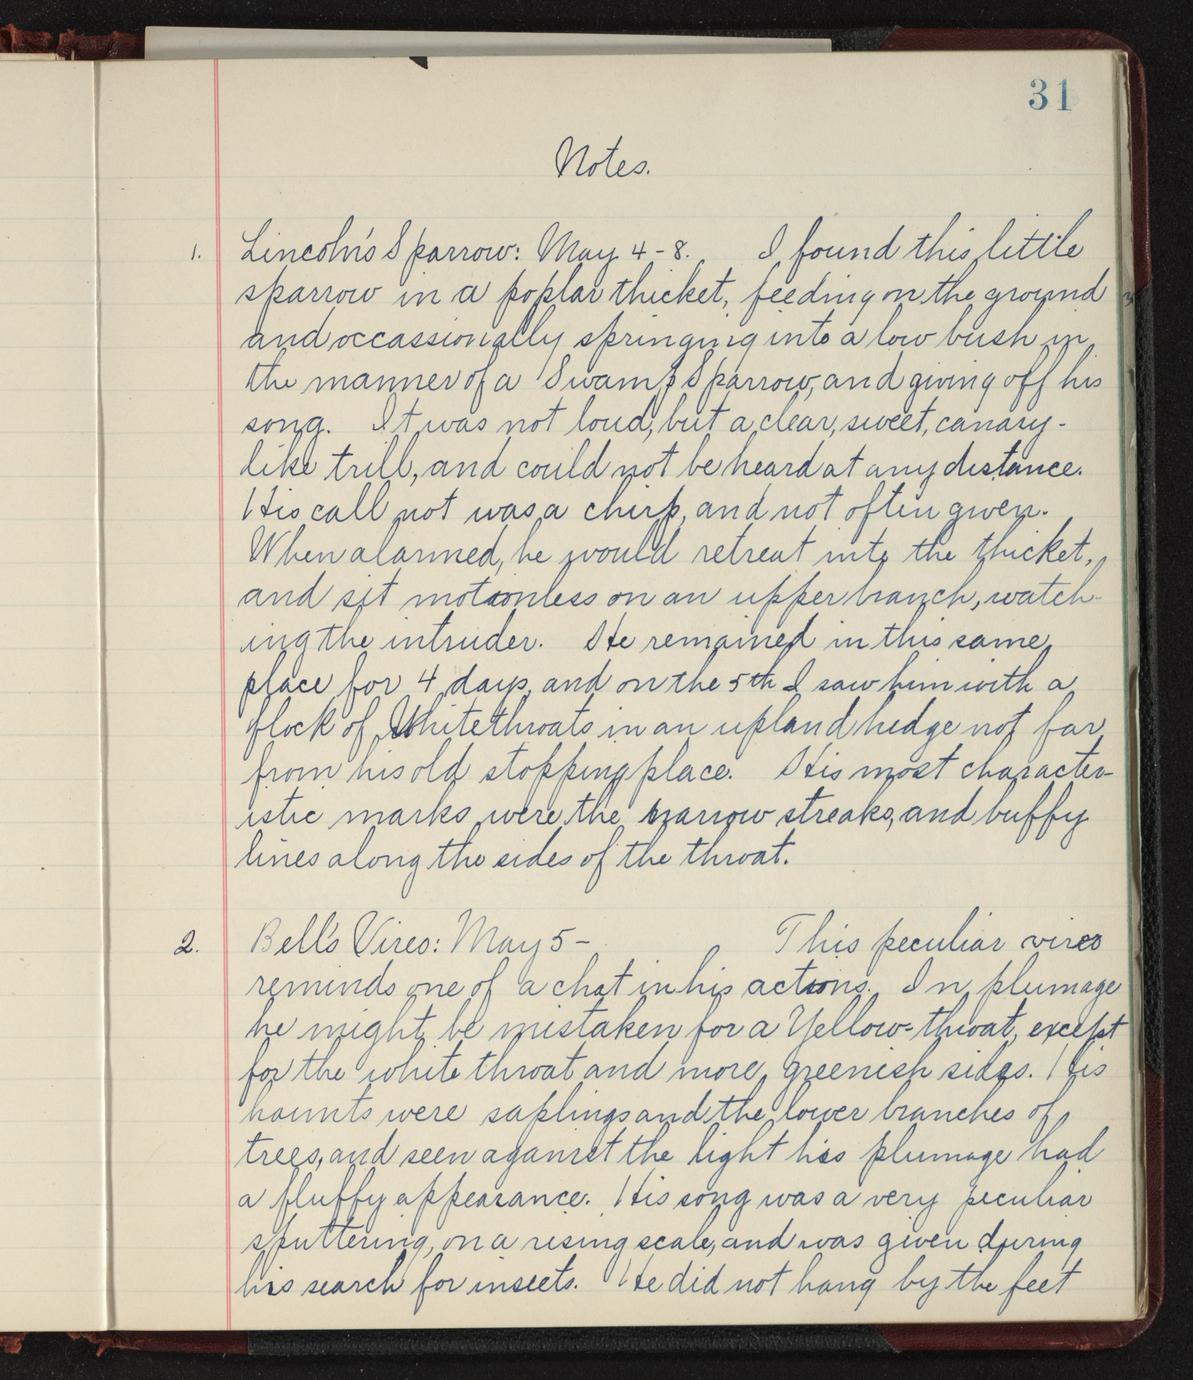 31
Notes.
1. Lincoln's Sparrow: May 4-8. I found this little
sparrow in a poplar thicket, feeding on the ground
and occassionally springing into a low bush in
the manner of a Swamp Sparrow, and giving off his
song. It was not loud, but a clear, sweet, canary-
like trill, and could not be heard at any distance.
His call not was a chirp, and not often given.
When alarmed, he would retreat into the thicket,
and sit motionless on an upper branch, watch-
ing the intruder. He remained in this same
place for 4 days, and on the 5th I saw him with a
flock of Whitethroats in an upland hedge not far
from his old stopping place. His most character-
istic marks were the narrow streaks, and buffy
lines along the sides of the throat.
2. Bell's Vireo: May 5- This peculiar vireo
reminds one of a chat in his actions. In plumage
he might be mistaken for a Yellow-throat, except
for the white throat and more greenish sides. His
haunts were saplings and the lower branches of
trees, and seen against the light his plumage had
a fluffy appearance. His song was a very peculiar
sputtering, on a rising scale, and was given during
his search for insects. He did not hang by the feet